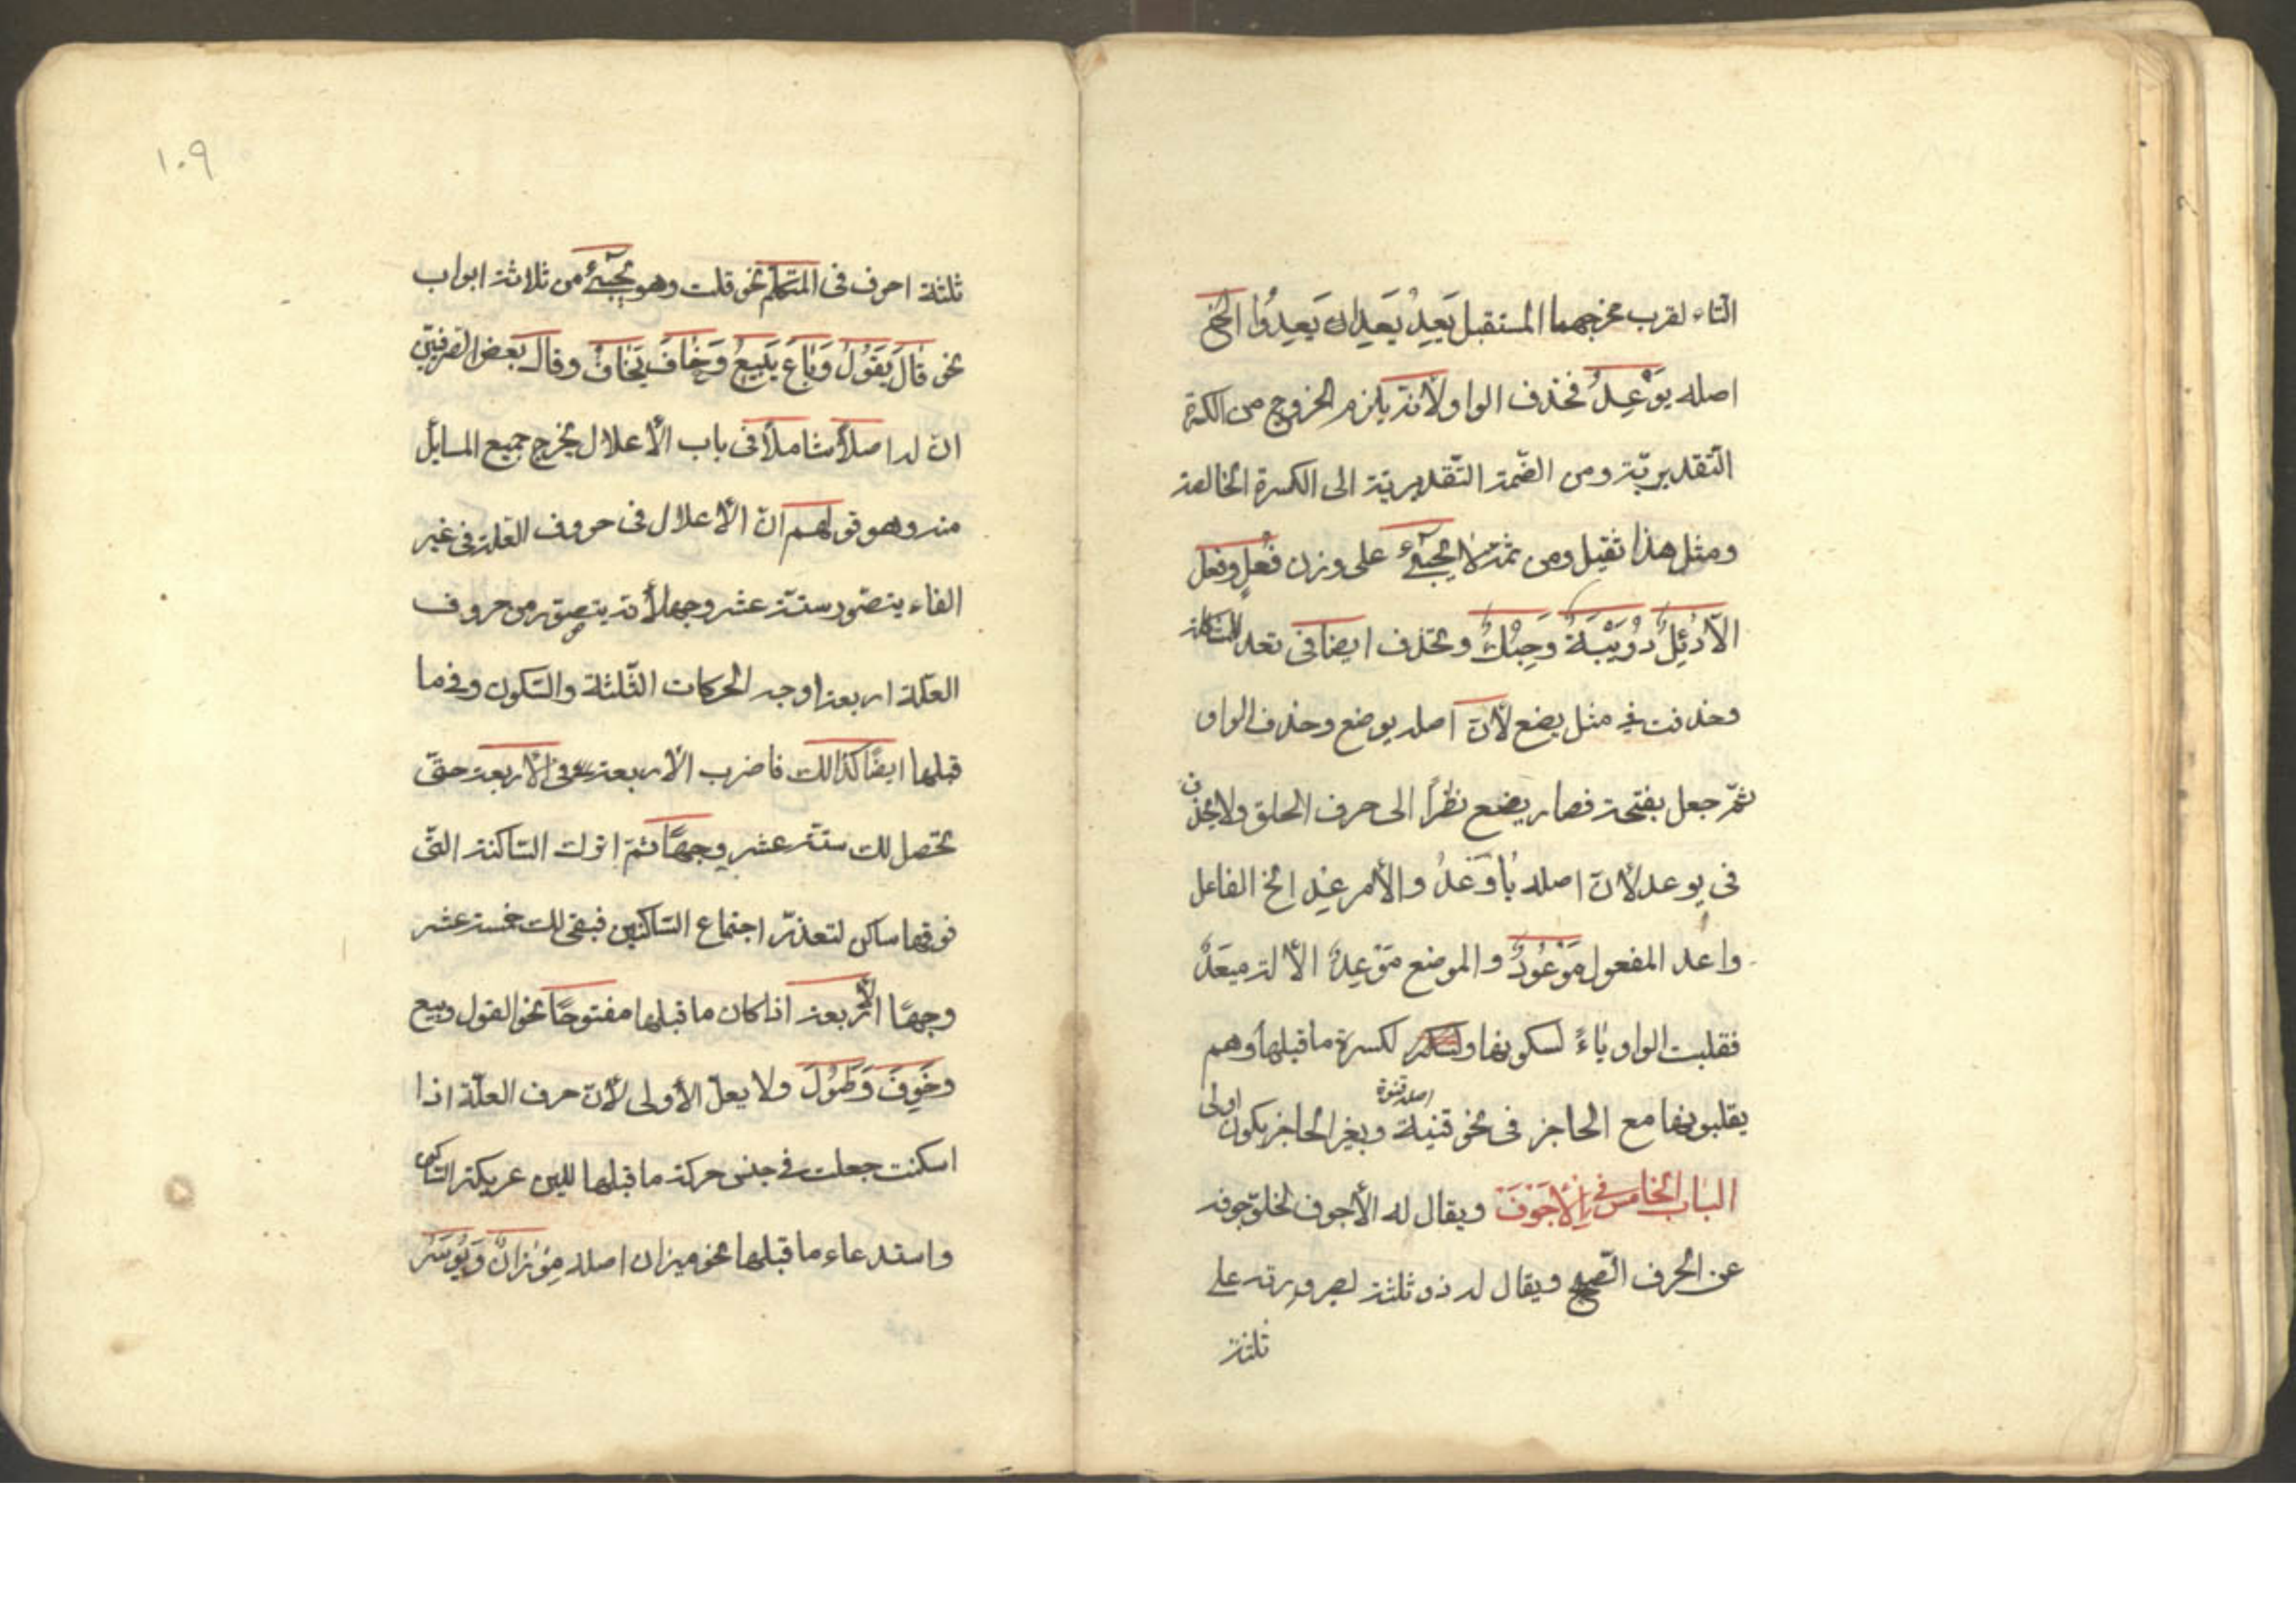 التاء لقرب مخرجهما المستقبل يَعِدُ يَعِدَانِ يَعِدُوا الخ
اصله يَوْعِدُ فحذف الواو لأنه يلزم الخروج من الكسرة
التقديريّة ومن الضّمة التّقديرية الى الكسرة الخالصة
ومثل هذا ثقيل ومن ثمة لا يجىء على وزن فُعِلٍ وفِعُل
الاّ دُئِلُ دُوَيْبَةٌ وَحِبُكٌ وتحذف ايضا فى تعد للمشاكلة
وحذفت فى مثل يضع لأنّ اصله يوضع وحذف الواو
ثمّ جعل بفتحة فصار يضع نظراً الى حرف الحلق ولا يحذف
فى يوعد لأنّ اصله يأوعد والأمر عِد الخ الفاعل
واعد المفعول مَوْعُودٌ والموضع مَوْعِدٌ الألة ميعَدٌ
فقلبت الواو يَاءً لسكونها لكسرة ما قبلها وهم
يقلبونها مع الحاجز فى نحو قنية وبغير الحاجز يكون اولى
اصله قنوة
الباب الخامس فى الأجوف ويقال له الأجوف لخلوّ جوفه
عن الحرف الصّحيح ويقال له ذو ثلثة لصرورته على
ثلثة
١٠٩
ثلثة احرف فى المتكلّم نحو قلت وهو يجىء من ثلاثة ابواب
نحو قَالَ يَقُولُ وَبَاعَ يَبِيعُ وَخَافَ يَخَافُ وقال بعض الصّرفيّين
انّ له اصلاً شاملاً فى باب الأعلال يخرج جميع المسائل
منه وهو قولهم انّ الأعلال فى حروف العلة فى غير
الفاء يتصّور ستة عشر وجها لأنه يتصوّر من حروف
العلّة اربعة اوجه الحركات الثّلثة والسّكون وفى ما
قبلها ايضًا كذالك فاضرب الأربعة فى الأربعة حتّى
تحصل لك ستّة عشر وجهًا ثمّ اترك السّاكنة الّتى
فوقها ساكن لتعذّر اجتماع السّاكنين فبقى لك خمسة عشر
وجهًا الأربعة اذا كان ما قبلها مفتوحًا نحو القول وبيع
وخَوِفَ وَطَوُلَ ولا يعلّ الأولى لأنّ حرف العلّة اذا
اسكنت جعلت فى جنس حركة ما قبلها للين عريكة السّاكن
واستدعاء ما قبلها نحو ميزان اصله مِوْزَانٌ وَيُوسَرُ